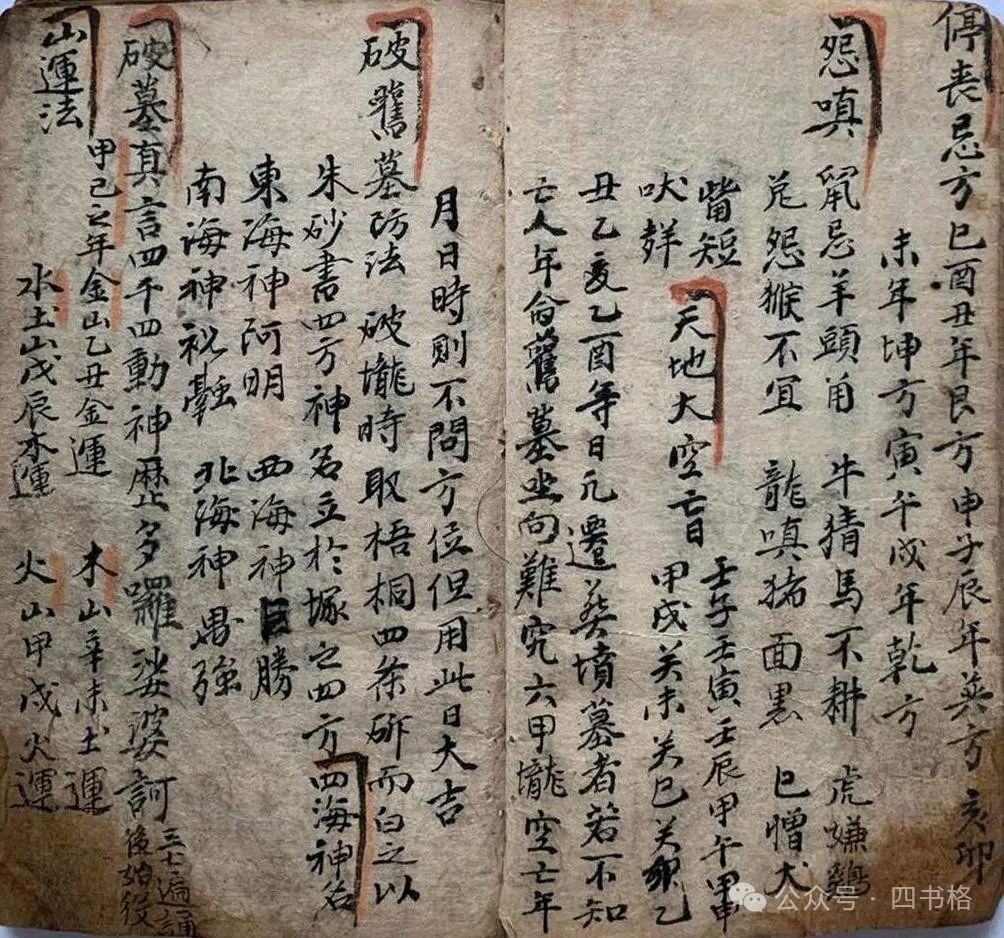 停丧忌方巳酉丑年艮方申子辰年巽方亥卯
未年坤方寅午戌年乾方
怨嗔 鼠忌羊頭角 牛猜馬不耕 虎嫌鷄
兎怨猴不宜 龍嗔猪面黑 巳憎犬
觜短
吠辞
天地大空亡日 壬子壬寅壬辰甲午甲申
甲戌癸未癸巳癸卯乙
丑乙亥乙酉等日凡遷葬墳墓者若不知
亡人年命舊墓坐向難究六甲塚空亡年
月日時則不問方位但用此日大吉
破舊墓防法 破塚時取梧桐四条斫而白之以
朱砂書四方神名立於塚之四方四海神名
東海神阿明 西海神巨勝
南海神祝融 北海神禺強
破墓真言四千四動神歷多囉娑婆訶 三七遍誦
後始役
山運法 甲己之年金山乙丑金運 木山辛未土運
水土山戊辰木運 火山甲戌火運
公众号·四书格